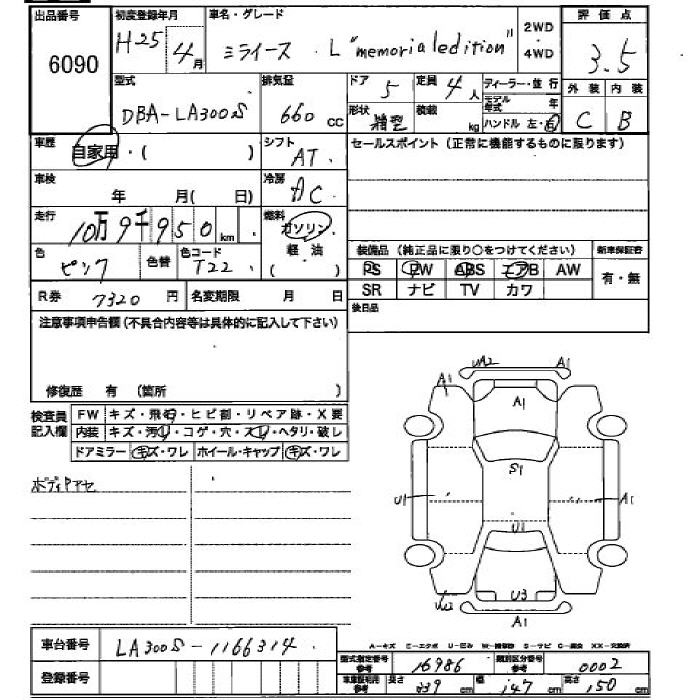 出品番号 初度登録年月 車名・グレード 2WD 評価点
6090 H25 4月 ミライース L "memorialedition" 4WD 3.5
型式 排気量 ドア 5 定員 4人 ディーラー・並行 外装 内装
DBA-LA300S 660cc 形状 箱型 積載 kg モデル年式 年 ハンドル 左・右 C B
車歴 自家用・( ) シフト AT セールスポイント(正常に機能するものに限ります)
車検 年 月( 日) 冷房 AC
走行 10万9千950km 燃料 ガソリン
色 ピンク 色替 色コード T22 軽油 ( ) 装備品(純正品に限り○をつけてください) 新車保証書
PS PW ABS エアB AW 有・無
R券 7320円 名変期限 月 日 SR ナビ TV カワ
注意事項申告欄(不具合内容等は具体的に記入して下さい) 後日品
修復歴 有 (箇所 )
検査員記入欄 FW キズ・飛石・ヒビ割・リペア跡・X要
内装 キズ・汚れ・コゲ・穴・スレ・ヘタリ・破レ
ドアミラー キズ・ワレ ホイール・キャップ キズ・ワレ
ボディアセ
UA2 A1
A1 A1
A1
S1
U1 A1
U1
U3
A1
A-キズ E-エクボ U-凹み W-補修跡 S-サビ C-腐食 XX-交換済
車台番号 LA300S-1166314 型式指定番号参考 16986 類別区分番号参考 0002
登録番号 車庫証明用参考 長さ 339cm 幅 147cm 高さ 150cm